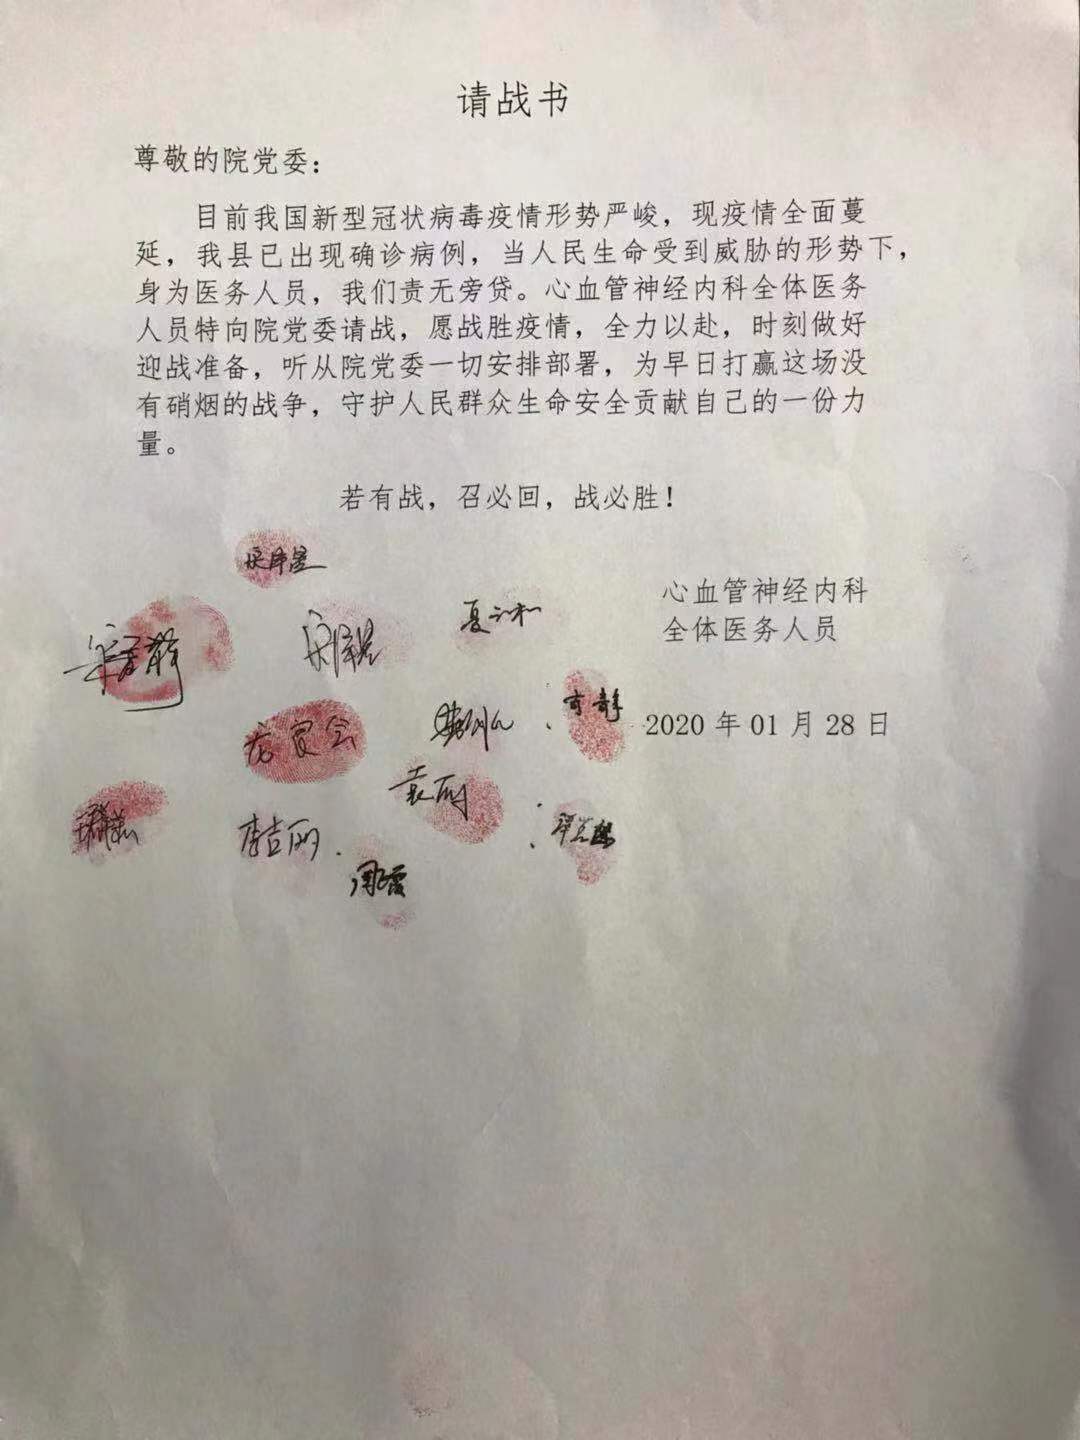 请战书
尊敬的院党委：
目前我国新型冠状病毒疫情形势严峻，现疫情全面蔓
延，我县已出现确诊病例，当人民生命受到威胁的形势下，
身为医务人员，我们责无旁贷。心血管神经内科全体医务
人员特向院党委请战，愿战胜疫情，全力以赴，时刻做好
迎战准备，听从院党委一切安排部署，为早日打赢这场没
有硝烟的战争，守护人民群众生命安全贡献自己的一份力
量。
若有战，召必回，战必胜！
心血管神经内科
全体医务人员
2020年01月28日
袁丽
李吉丽